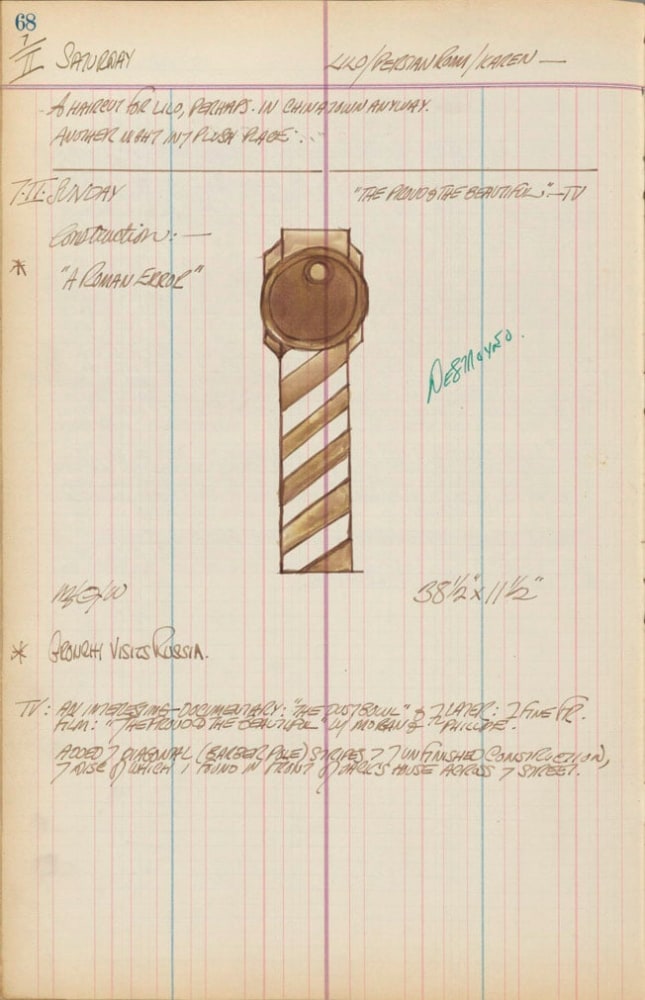 68
7/II SATURDAY LILO/PERSIAN ROOM/KAREN —
- A HAIRCUT FOR LILO, PERHAPS. IN CHINATOWN ANYWAY.
ANOTHER NIGHT IN 7 PLUSH PLACE. . .
7·II· SUNDAY "THE PROUD & THE BEAUTIFUL" — TV
Construction: —
* "A ROMAN ERROR"
M/G/W 38 1/2" x 11 1/2"
* GRONCHI VISITS RUSSIA.
TV: AN INTERESTING DOCUMENTARY: "THE DUST BOWL" & 7 LATER: 7 FINE FR.
FILM: "THE PROUD & THE BEAUTIFUL" W/ MORGAN & PHILIPE.
ADDED 7 DIAGONAL (BARBER POLE) STRIPES 7 7 UNFINISHED CONSTRUCTION,
7 DISC OF WHICH I FOUND IN FRONT OF JACK'S HOUSE ACROSS 7 STREET.